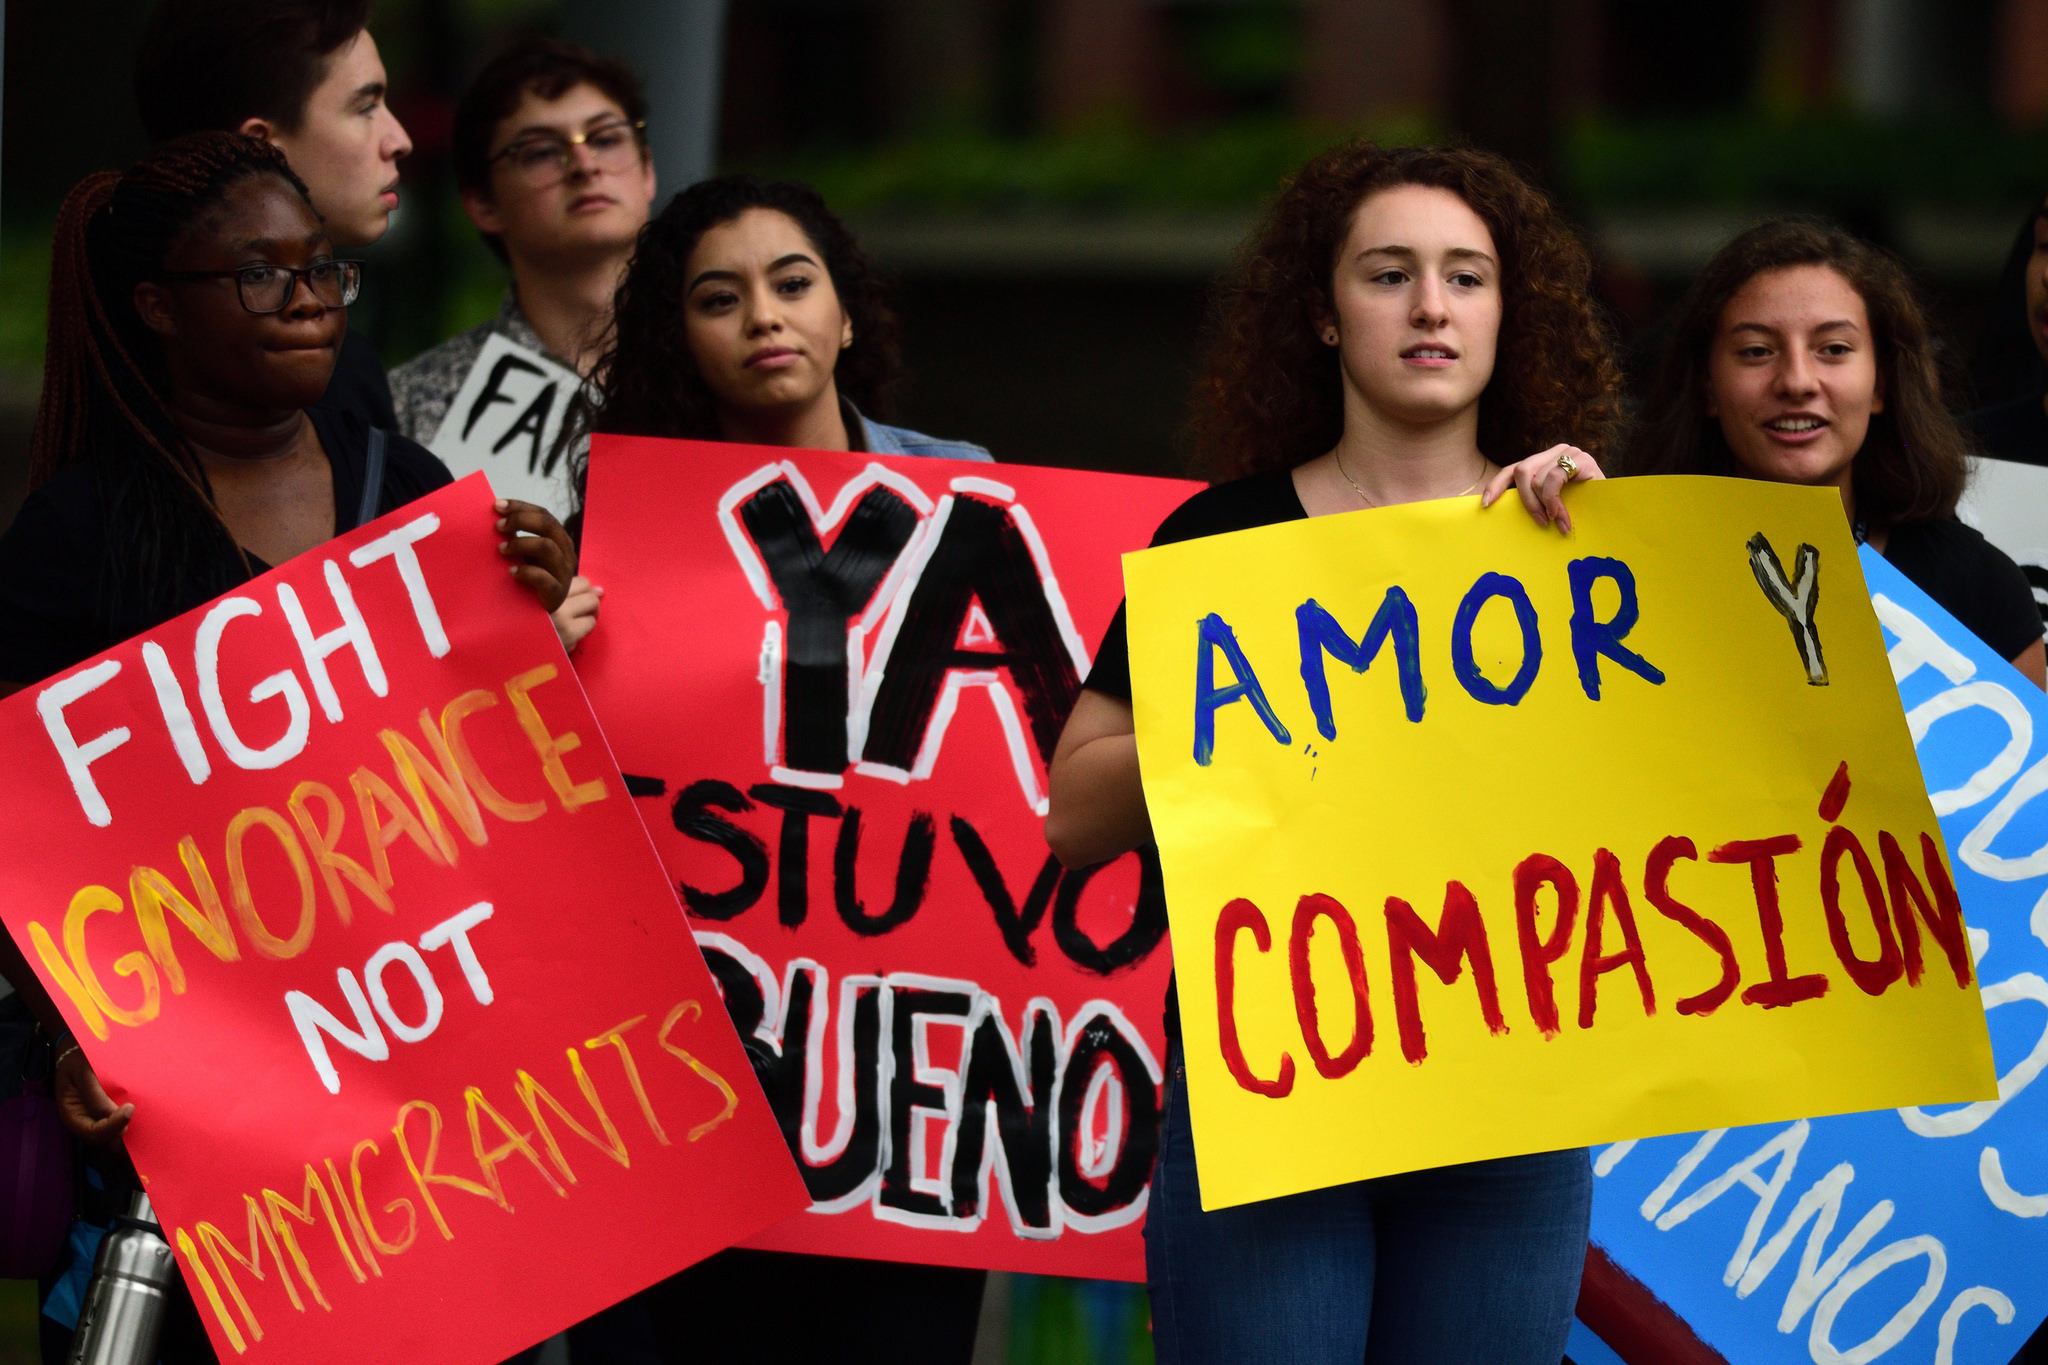 FIGHT
IGNORANCE
NOT
IMMIGRANTS
YA
ESTUVO
BUENO
AMOR Y
COMPASIÓN